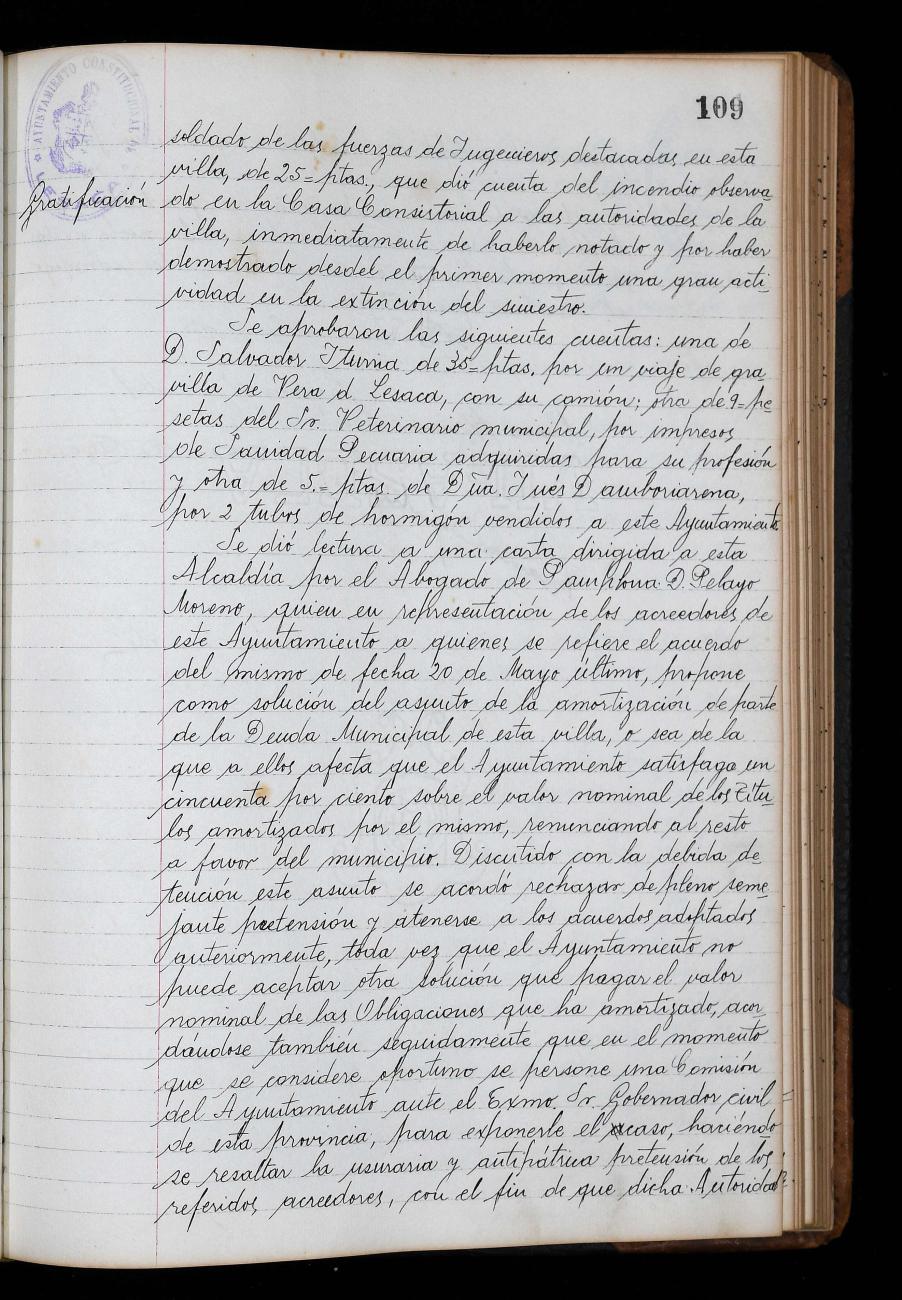 109
AYUNTAMIENTO CONSTITUCIONAL DE
Gratificación
soldado de las fuerzas de Ingenieros destacadas en esta
villa, de 25= ptas., que dió cuenta del incendio observa-
do en la Casa Consistorial a las autoridades de la
villa, inmediatamente de haberlo notado y por haber
demostrado desdel el primer momento una gran acti-
vidad en la extinción del siniestro.
Se aprobaron las siguientes cuentas: una de
D. Salvador Iturria de 35= ptas. por un viaje de gra-
villa de Vera a Lesaca, con su camión; otra de 9= pe-
setas del Sr. Veterinario municipal, por impresos
de Sanidad Pecuaria adquiridas para su profesión
y otra de 5.= ptas. de Dña. Inés Damboriarena,
por 2 tubos de hormigón vendidos a este Ayuntamiento.
Se dió lectura a una carta dirigida a esta
Alcaldía por el Abogado de Pamplona D. Pelayo
Moreno, quien en representación de los acreedores de
este Ayuntamiento a quienes se refiere el acuerdo
del mismo de fecha 20 de Mayo último, propone
como solución del asunto de la amortización de parte
de la Deuda Municipal de esta villa, o sea de la
que a ellos afecta que el Ayuntamiento satisfaga un
cincuenta por ciento sobre el valor nominal de los Títu-
los amortizados por el mismo, renunciando al resto
a favor del municipio. Discutido con la debida de-
tención este asunto se acordó rechazar de pleno seme-
jante pretensión y atenerse a los acuerdos adoptados
anteriormente, toda vez que el Ayuntamiento no
puede aceptar otra solución que pagar el valor
nominal de las Obligaciones que ha amortizado, acor-
dándose también seguidamente que en el momento
que se considere oportuno se persone una Comisión
del Ayuntamiento ante el Exmo. Sr. Gobernador civil
de esta provincia, para exponerle el caso, haciéndo-
se resaltar la usuraria y antipática pretensión de los
referidos acreedores, con el fin de que dicha Autoridad